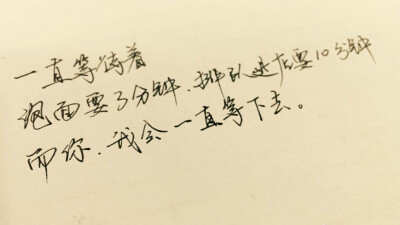 一直等待着
泡面要3分钟、排队进店要10分钟
而你、我会一直等下去。